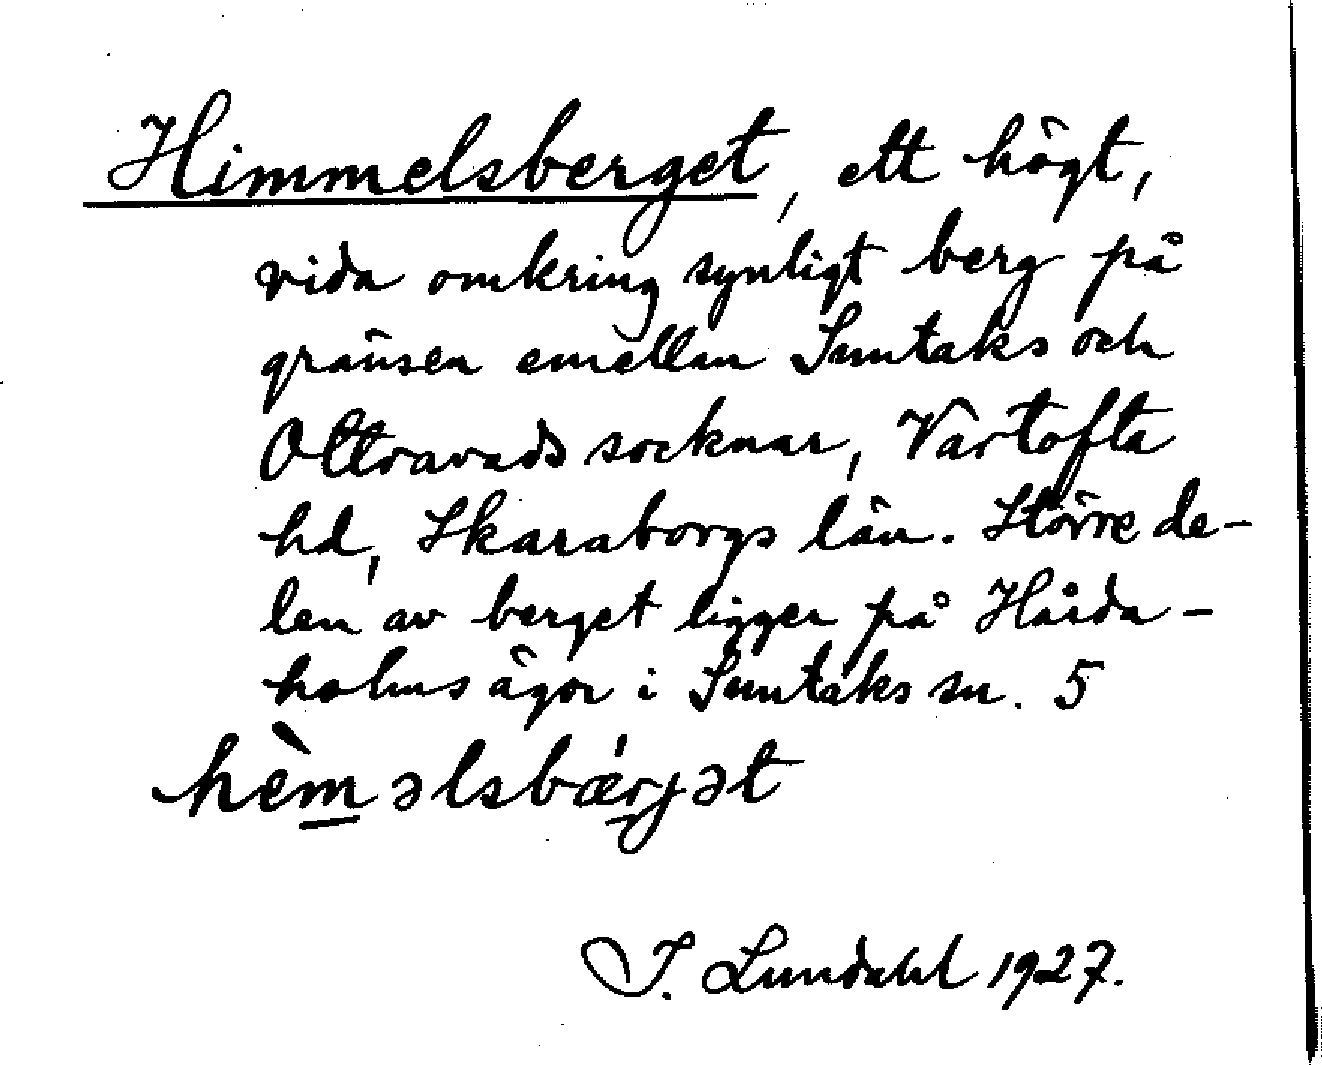 Himmelsberget, ett högt,
vida omkring synligt berg på
gränsen emellan Suntaks och
Ottravads socknar, Vartofta
hd, Skaraborgs län. Större de-
len av berget ligger på Hårda-
holms ägor i Suntaks sn. 5
hèməlsbæ̀rjət
I. Lundahl 1927.